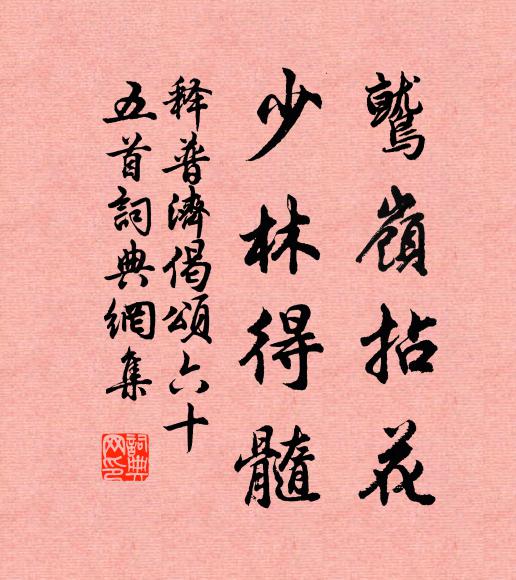 鷲嶺拈花
少林得髓
释普濟偈頌六十
五首詞典網集
詞典网印